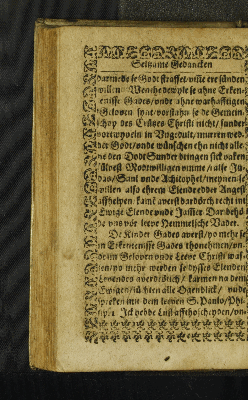 Seltzame Gedancken
darmede se Godt straffet/ umme ere sünden
willen Wenche dewyle se ahne Erken-
tenisse Gades/ unde ahne warhafftigen
Geloven synt/ vorstahn se de Gemein-
schop des Crützes Christi nicht/ sunder
vortwyveln in Ungedult/ murren wed-
der Godt/ unde wünschen ehn nicht alle-
ne den Dodt Sunder bringen sick vaken
sülvest Mootwilligen umme/ alse Ju-
das/ Saul unde Achitophel/ meynen se
willen also ehrem Elende edder Angest
affhelpen kamen averst dardörch recht int
Ewige Elende unde Jammer Darbehö-
de uns vor leeve Hemmelsche Vader.
De Kinder Gades averst/ yo mehr se
in Erkentenisse Gades thonehmen/ un-
de im Geloven unde Leeve Christi was-
sen/ yo mehr werden se dysses Elenden
Levendes averdrötich/ karmen na dem
Ewigen/ süchten alle Ogenblick/ unde
spreken mit dem leeven S. Paulo/ Phi-
lipp. 1. Ick hebbe Lust affthoscheyden/ un-